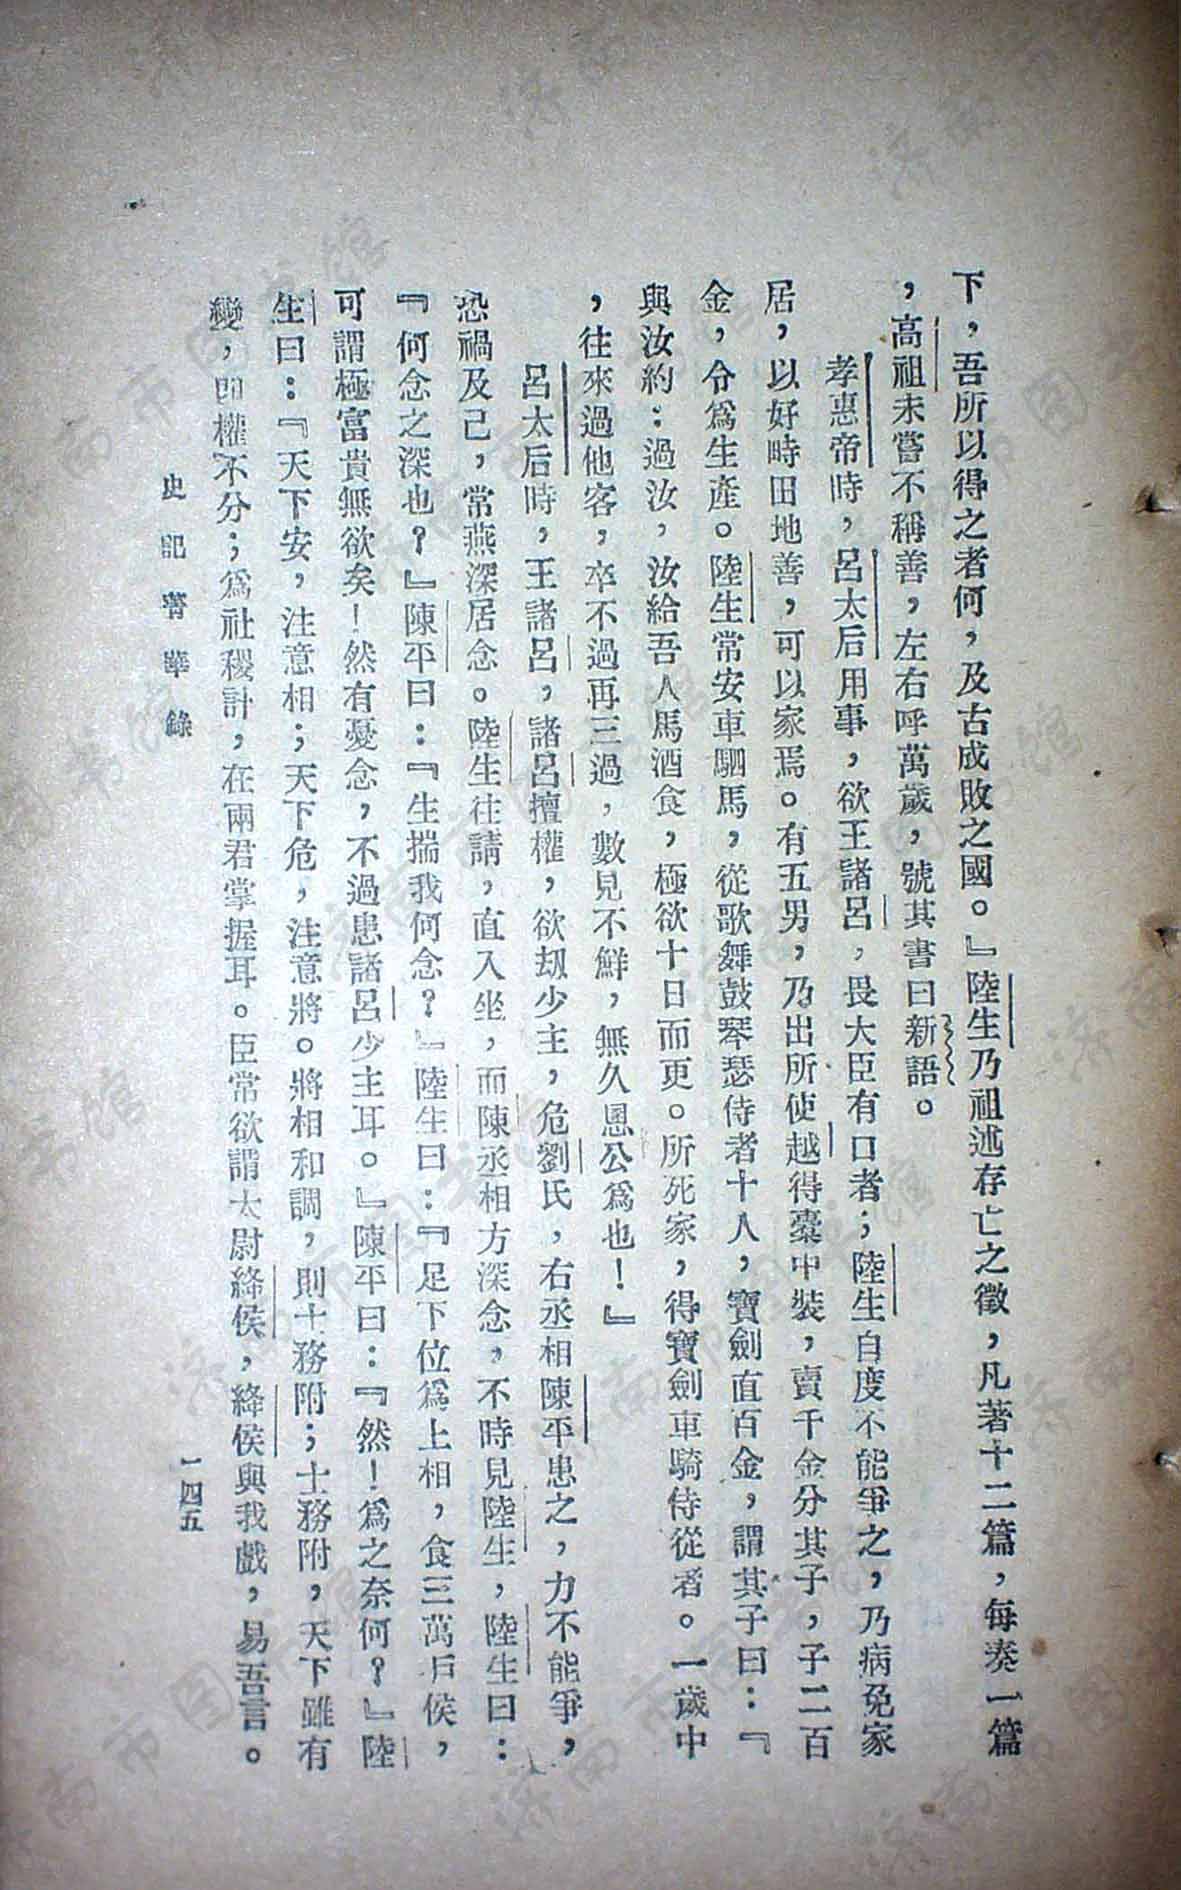 下，吾所以得之者何，及古成敗之國。』陸生乃祖述存亡之徵，凡著十二篇，每奏一篇
，高祖未嘗不稱善，左右呼萬歲，號其書曰新語。
孝惠帝時，呂太后用事，欲王諸呂，畏大臣有口者；陸生自度不能爭之，乃病免家
居，以好畤田地善，可以家焉。有五男，乃出所使越得橐中裝，賣千金分其子，子二百
金，令爲生產。陸生常安車駟馬，從歌舞鼓琴瑟侍者十人，寶劍直百金，謂其子曰：『
與汝約：過汝，汝給吾人馬酒食，極欲十日而更。所死家，得寶劍車騎侍從者。一歲中
，往來過他客，卒不過再三過，數見不鮮，無久恩公爲也！』
呂太后時，王諸呂，諸呂擅權，欲刼少主，危劉氏，右丞相陳平患之，力不能爭，
恐禍及己，常燕深居念。陸生往請，直入坐，而陳丞相方深念，不時見陸生，陸生曰：
『何念之深也？』陳平曰：『生揣我何念？』陸生曰：『足下位爲上相，食三萬戶侯，
可謂極富貴無欲矣！然有憂念，不過患諸呂少主耳。』陳平曰：『然！爲之奈何？』陸
生曰：『天下安，注意相；天下危，注意將。將相和調，則士務附；士務附，天下雖有
變，即權不分；爲社稷計，在兩君掌握耳。臣常欲謂太尉絳侯，絳侯與我戲，易吾言。
史記菁華錄
一四五
濟南市图书馆